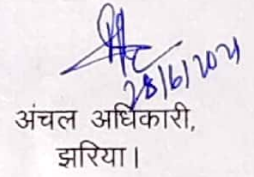 28/6/2021
अंचल अधिकारी,
झरिया।